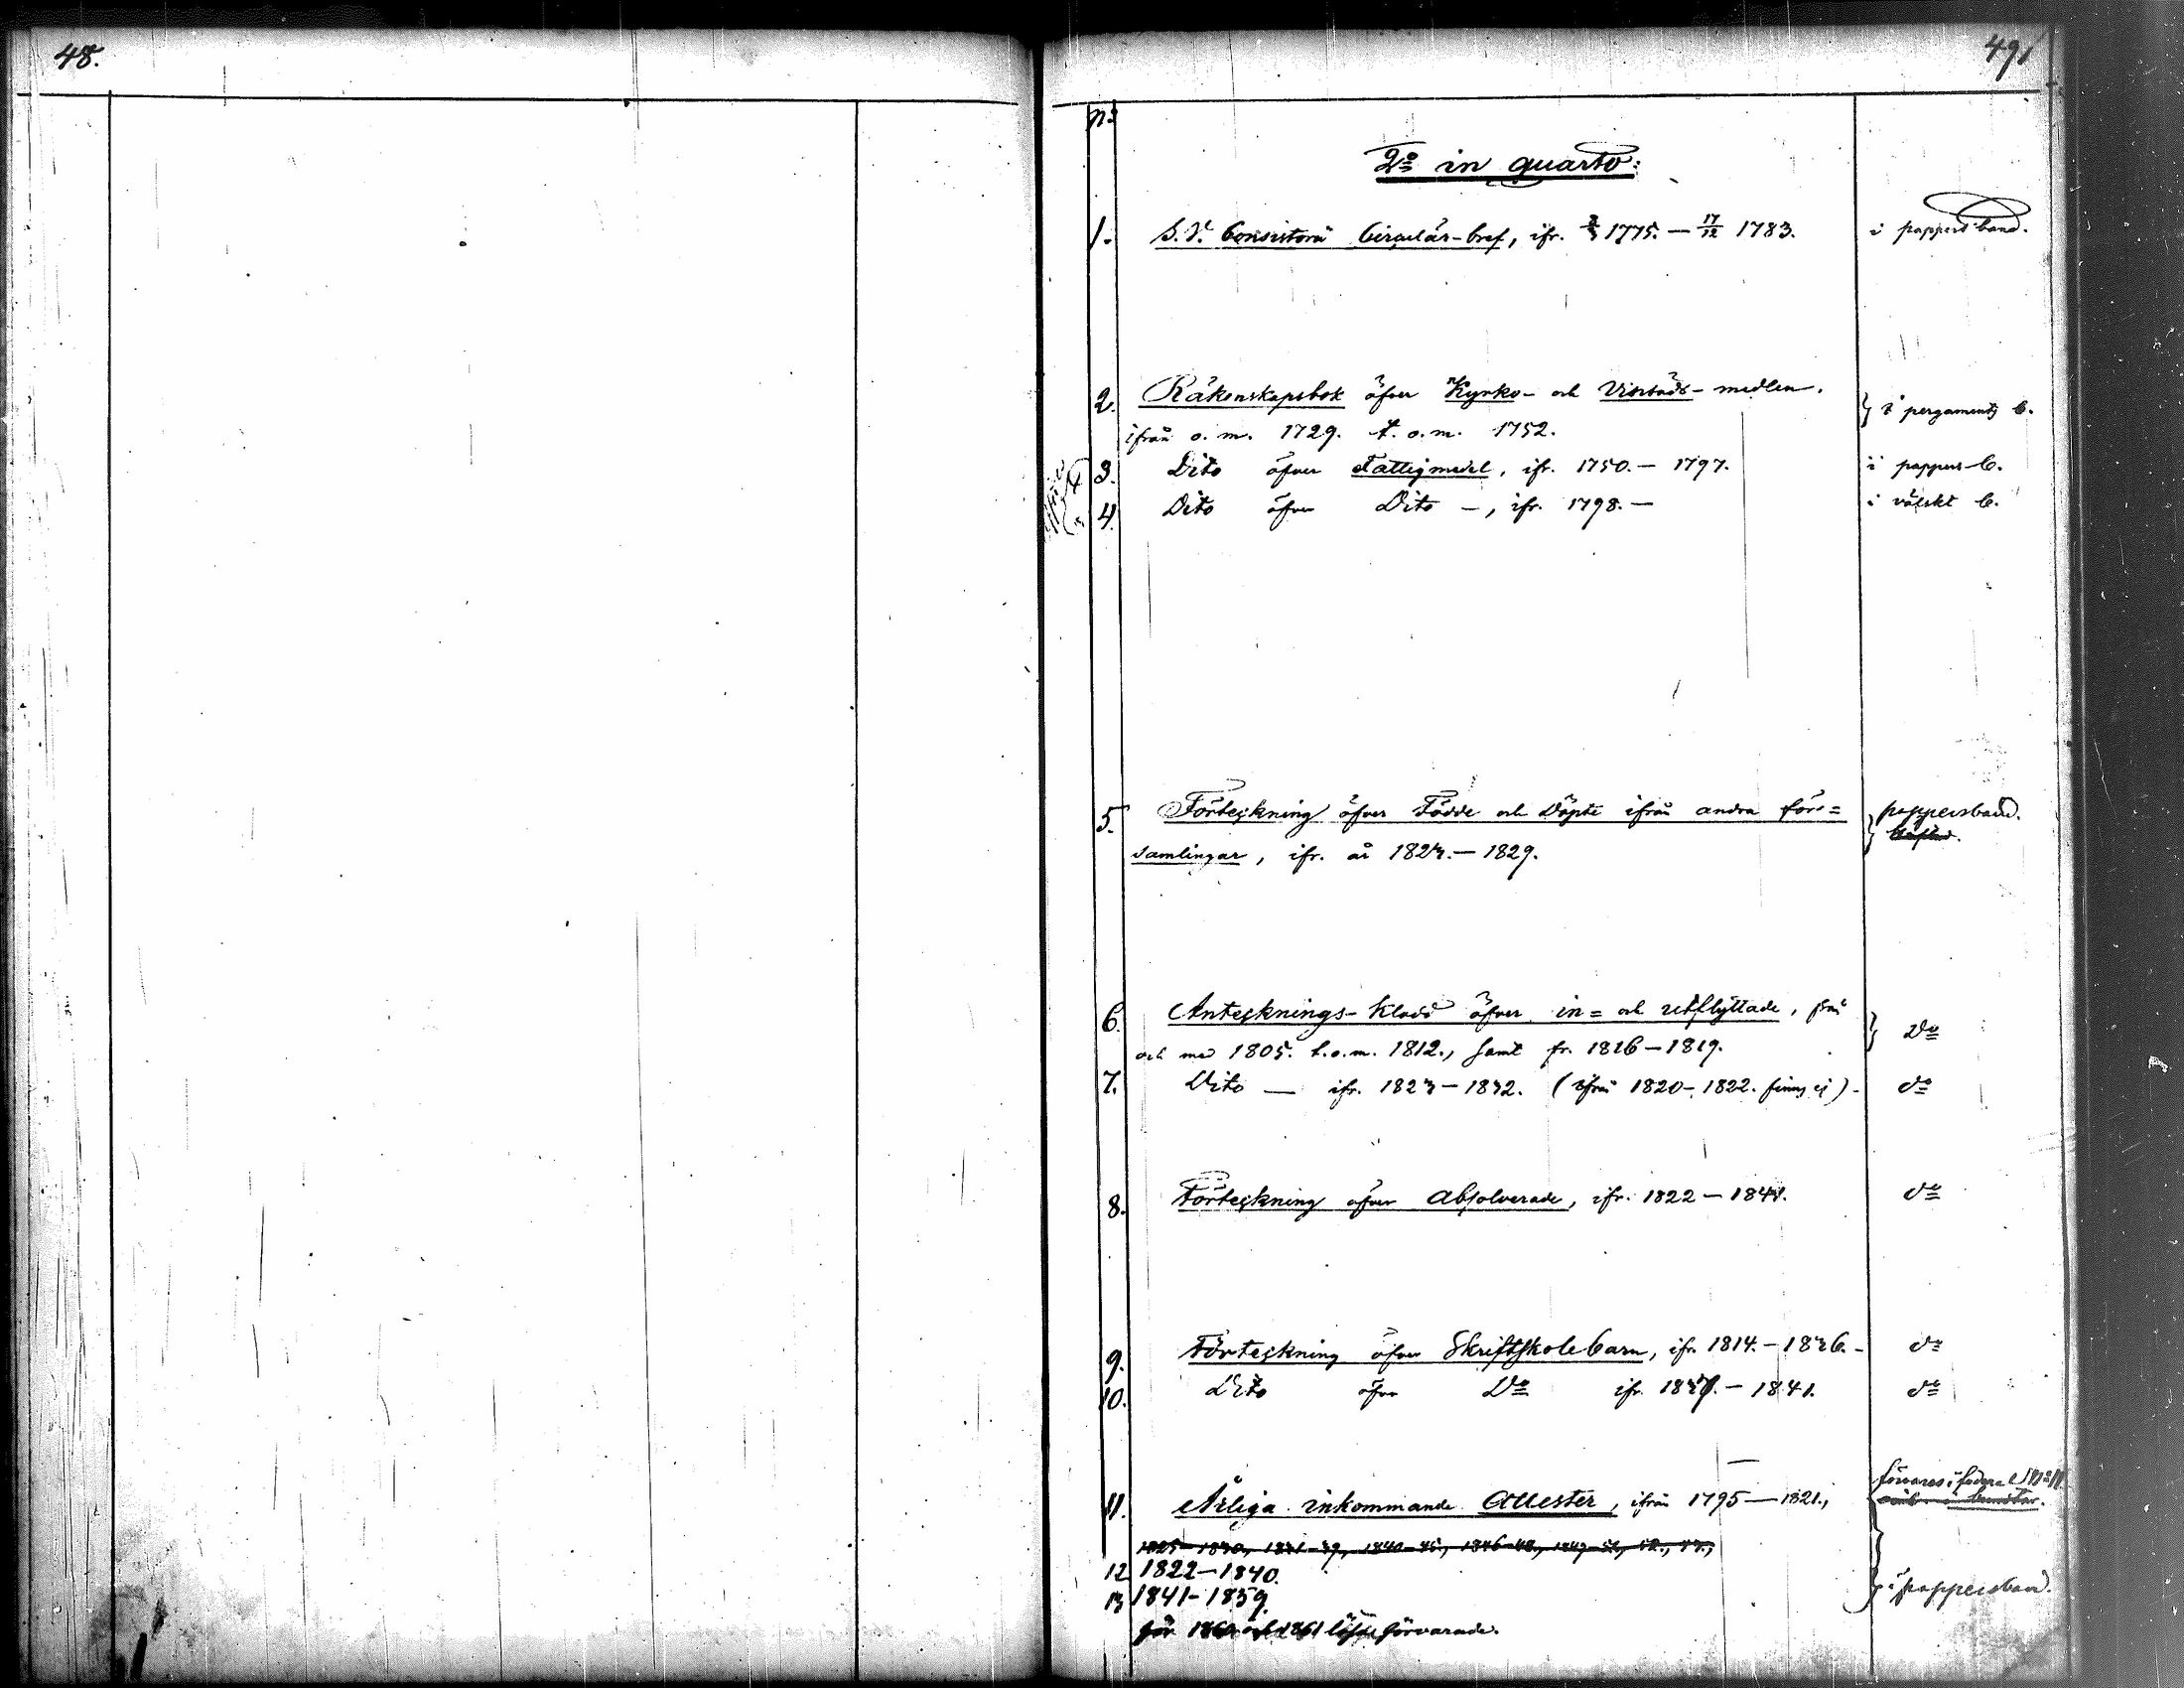 48.
49,
No
2o in quarto:
1. S. V. Consistorii Circulär-bref, ifr. 1775. — 17/12 1783. i pappersband.
2. Räkenskapsbok öfver Kyrko- och Vinsäds-medlen. } i pergaments b.
ifrån o. m. 1729. t. o. m. 1752.
3. Dito öfver Fattigmedel, ifr. 1750. — 1797. i pappers-b.
4. Dito öfver Dito —, ifr. 1798. — i välskt b.
5. Förteckning öfver Födde och Döpte ifrån andra för= } pappersband.
samlingar, ifr. år 1823. — 1829. häftad.
6. Antecknings-Kladd öfver in= och utflyttade, från } Do
och med 1805. t.o.m. 1812., samt fr. 1816—1819.
7. Dito — ifr. 1823—1832. (ifrån 1820—1822. finns ej) — do
8. Förteckning öfver Absolverade, ifr. 1822—1841. do
9. Förteckning öfver Skriftskolebarn, ifr. 1814.—1836.— do
10. Dito öfver Do ifr. 1837.—1841. do
11. Årliga inkommande Attester, ifrån 1795—1821., förvaras i foderal
1825—1830, 1831—39, 1840—45, 1846—48, 1849—51,
12 1822—1840.
13 1841—1859. } i pappersband.
för 1860 och 1861 löse förvarade.